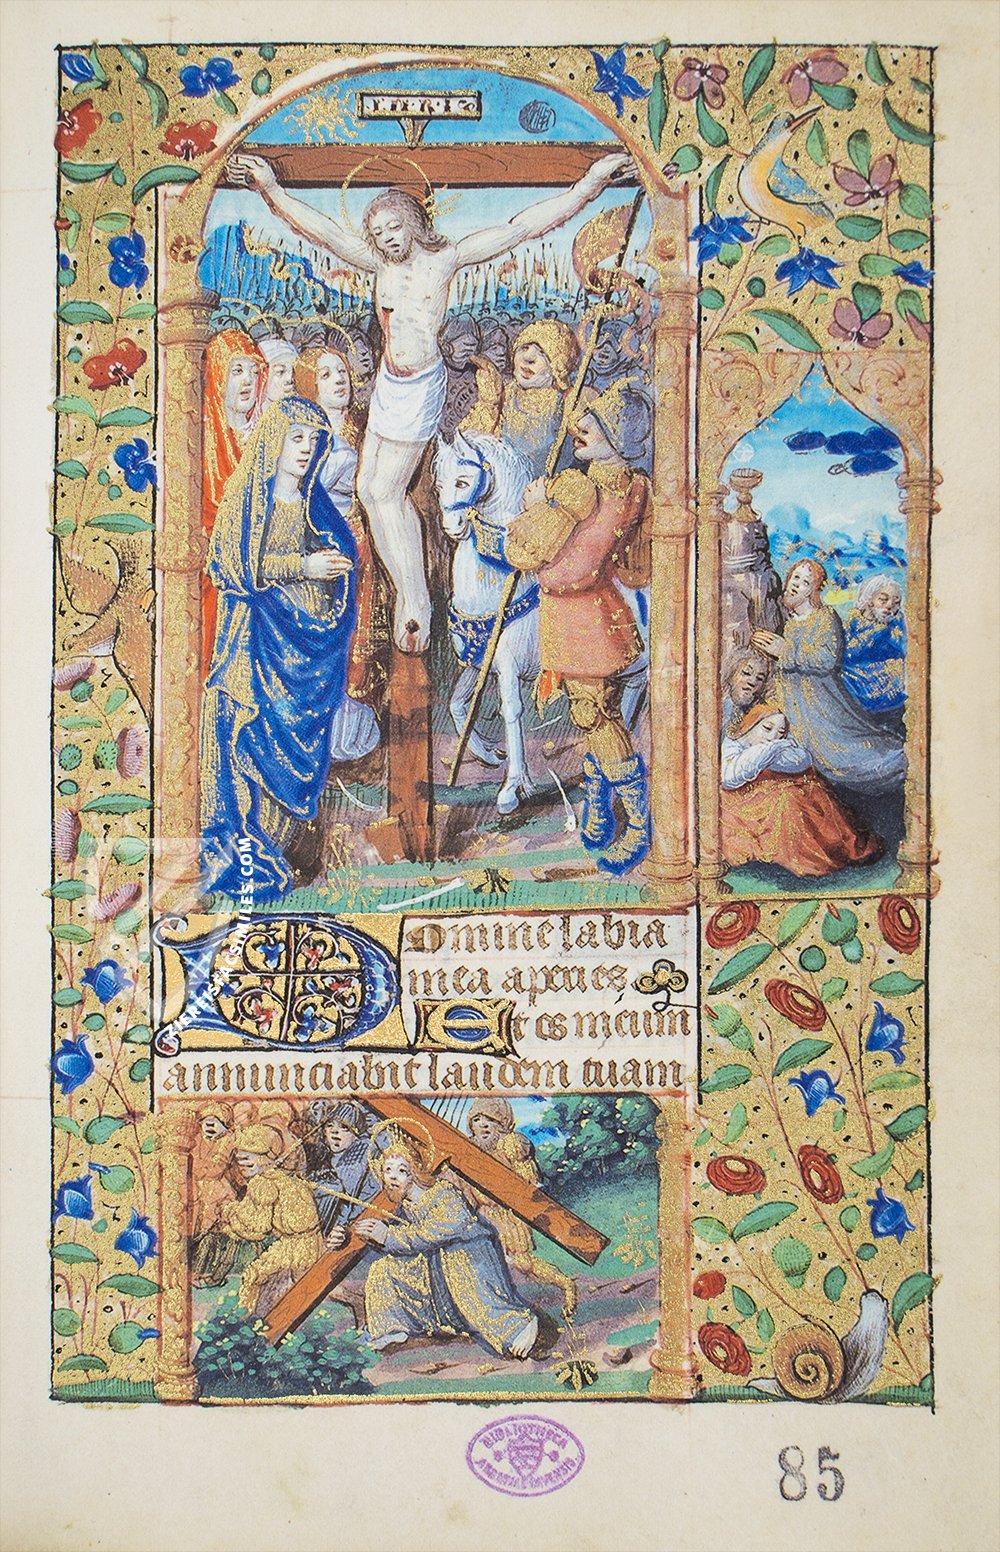 I·N·R·I
Domine labia
mea aperies
Et os meum
annunciabit laudem tuam
ZIEREISFACSIMILES.COM
BIBLIOTHECA
85